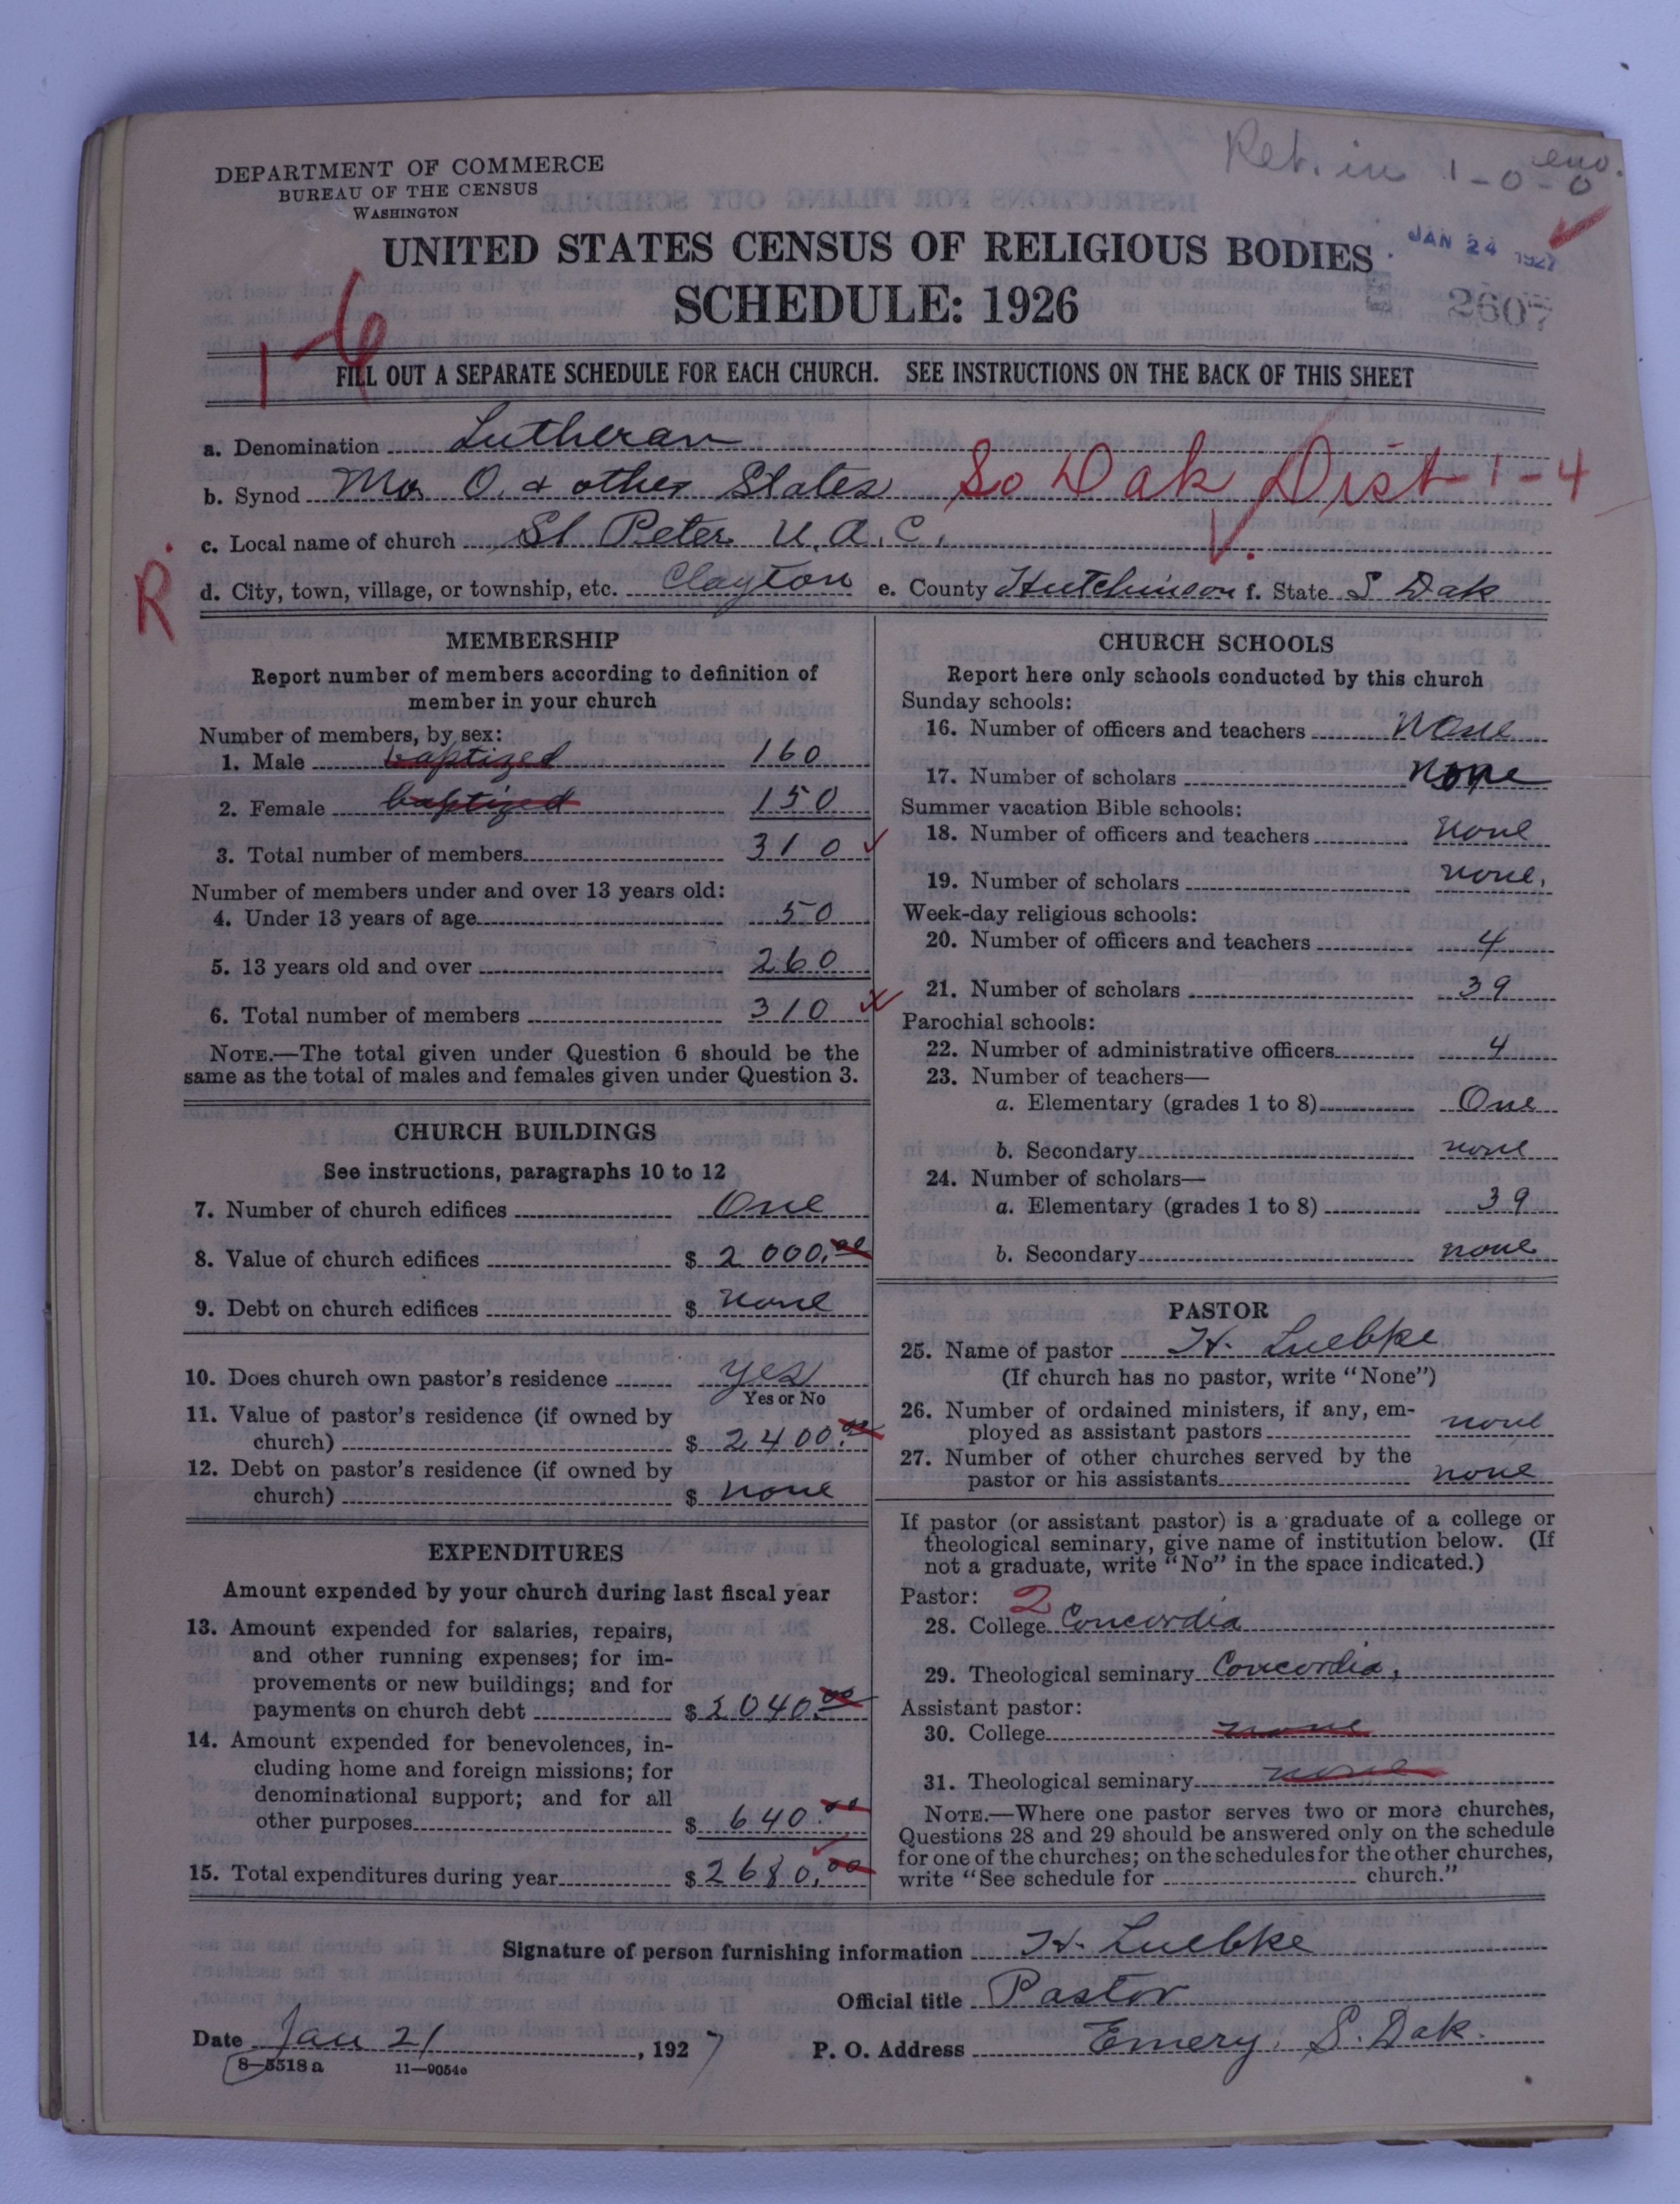 Ret. in 1-0-0 env.
DEPARTMENT OF COMMERCE
BUREAU OF THE CENSUS
WASHINGTON
JAN 24 1927
UNITED STATES CENSUS OF RELIGIOUS BODIES
SCHEDULE: 1926
2607
1-6
FILL OUT A SEPARATE SCHEDULE FOR EACH CHURCH. SEE INSTRUCTIONS ON THE BACK OF THIS SHEET
a. Denomination Lutheran
b. Synod Mo O. & other States So Dak Dist 1-4
c. Local name of church St Peter U.A.C.
R
d. City, town, village, or township, etc. Clayton e. County Hutchinson f. State S Dak
MEMBERSHIP
Report number of members according to definition of
member in your church
Number of members, by sex:
1. Male baptized 160
2. Female baptized 150
3. Total number of members 310
Number of members under and over 13 years old:
4. Under 13 years of age 50
5. 13 years old and over 260
6. Total number of members 310
NOTE.—The total given under Question 6 should be the
same as the total of males and females given under Question 3.
CHURCH BUILDINGS
See instructions, paragraphs 10 to 12
7. Number of church edifices One
8. Value of church edifices $ 2000.00
9. Debt on church edifices $ none
10. Does church own pastor's residence yes
Yes or No
11. Value of pastor's residence (if owned by
church) $ 2400.00
12. Debt on pastor's residence (if owned by
church) $ none
EXPENDITURES
Amount expended by your church during last fiscal year
13. Amount expended for salaries, repairs,
and other running expenses; for im-
provements or new buildings; and for
payments on church debt $ 2040.00
14. Amount expended for benevolences, in-
cluding home and foreign missions; for
denominational support; and for all
other purposes $ 640.00
15. Total expenditures during year $ 2680.00
CHURCH SCHOOLS
Report here only schools conducted by this church
Sunday schools:
16. Number of officers and teachers none
17. Number of scholars none
Summer vacation Bible schools:
18. Number of officers and teachers none
19. Number of scholars none.
Week-day religious schools:
20. Number of officers and teachers 4
21. Number of scholars 39
Parochial schools:
22. Number of administrative officers 4
23. Number of teachers—
a. Elementary (grades 1 to 8) One
b. Secondary none
24. Number of scholars—
a. Elementary (grades 1 to 8) 39
b. Secondary none
PASTOR
25. Name of pastor H. Luebke
(If church has no pastor, write "None")
26. Number of ordained ministers, if any, em-
ployed as assistant pastors none
27. Number of other churches served by the
pastor or his assistants none
If pastor (or assistant pastor) is a graduate of a college or
theological seminary, give name of institution below. (If
not a graduate, write "No" in the space indicated.)
Pastor: 2
28. College Concordia
29. Theological seminary Concordia,
Assistant pastor:
30. College none
31. Theological seminary none
NOTE.—Where one pastor serves two or more churches,
Questions 28 and 29 should be answered only on the schedule
for one of the churches; on the schedules for the other churches,
write "See schedule for church."
Signature of person furnishing information H. Luebke
Official title Pastor
Date Jan 21, 1927 P. O. Address Emery, S. Dak.
8-5518a 11-9054e